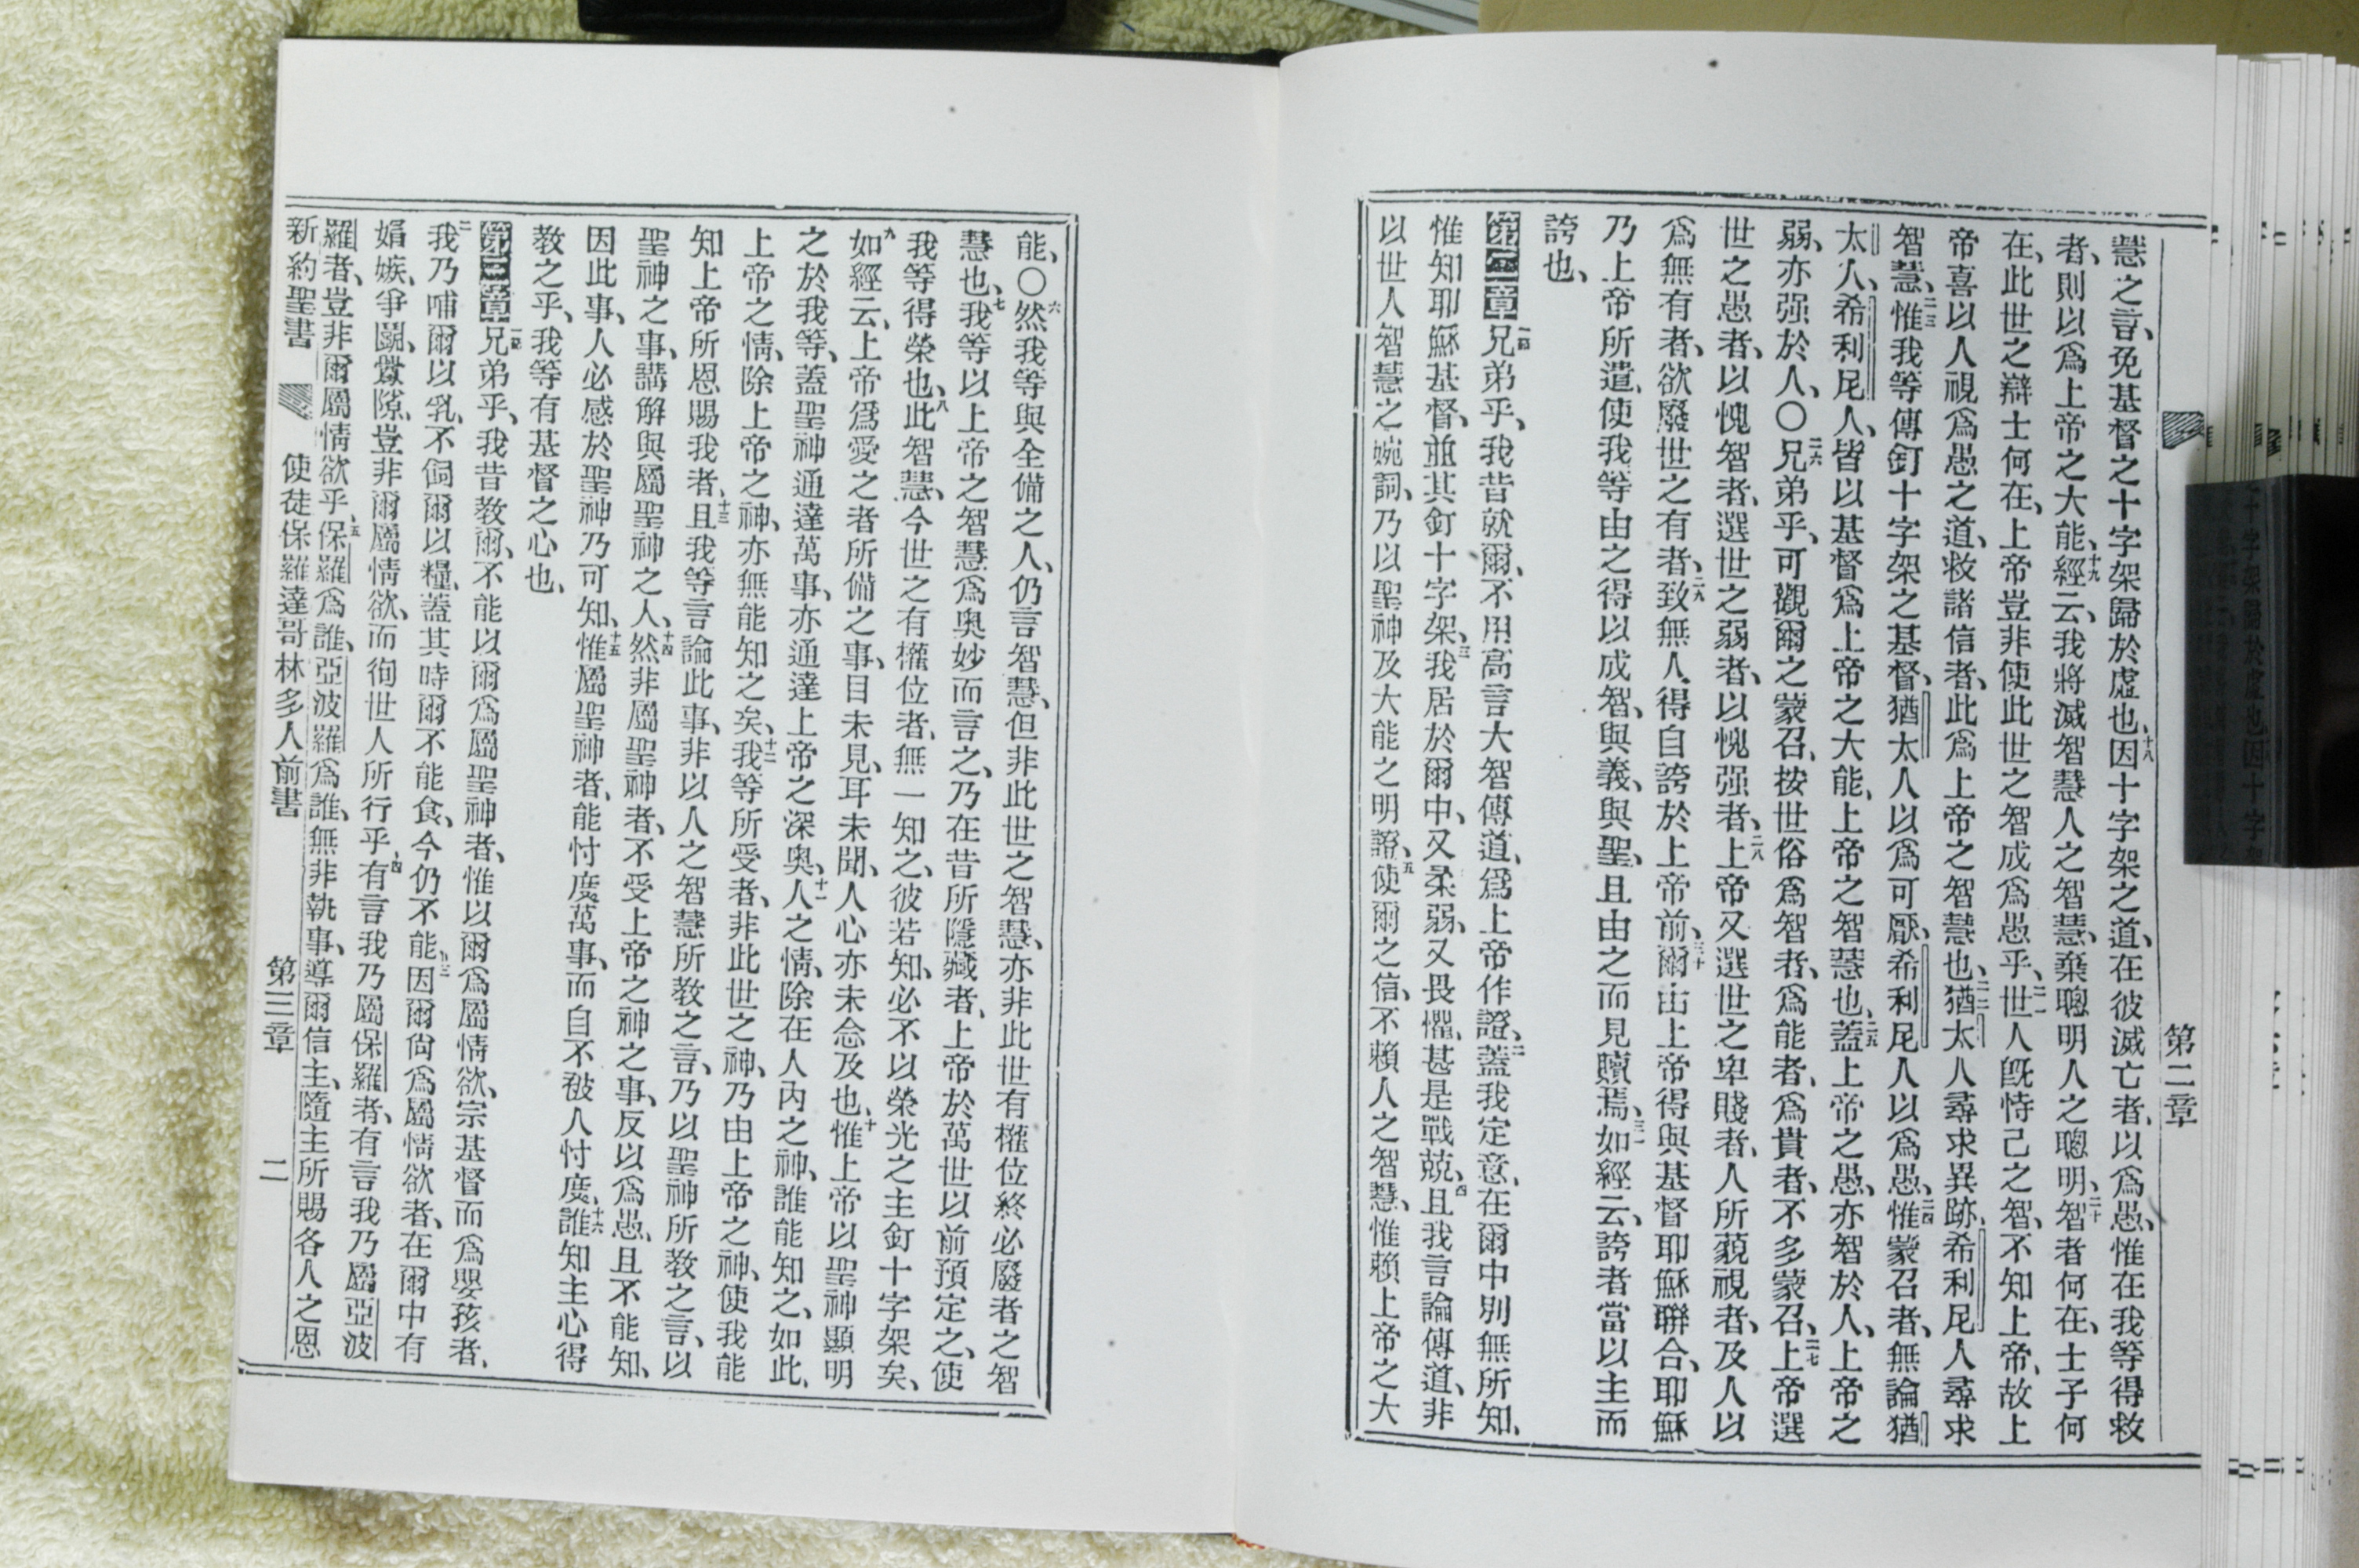 第二章
慧之言、免基督之十字架歸於虛也、十八因十字架之道、在彼滅亡者、以爲愚、惟在我等得救
者、則以爲上帝之大能、十九經云、我將滅智慧人之智慧、棄聰明人之聰明、二十智者何在、士子何
在、此世之辯士何在、上帝豈非使此世之智成爲愚乎、二一世人旣恃己之智、不知上帝、故上
帝喜以人視爲愚之道、救諸信者、此爲上帝之智慧也、二二猶太人尋求異跡、希利尼人尋求
智慧、二三惟我等傳釘十字架之基督、猶太人以爲可厭、希利尼人以爲愚、二四惟蒙召者、無論猶
太人、希利尼人、皆以基督爲上帝之大能、上帝之智慧也、二五蓋上帝之愚、亦智於人、上帝之
弱、亦强於人、〇二六兄弟乎、可觀爾之蒙召、按世俗爲智者、爲能者、爲貴者、不多蒙召、二七上帝選
世之愚者、以愧智者、選世之弱者、以愧强者、二八上帝又選世之卑賤者、人所藐視者、及人以
爲無有者、欲廢世之有者、二九致無人得自誇於上帝前、三十爾由上帝得與基督耶穌聯合、耶穌
乃上帝所遣、使我等由之得以成智、與義、與聖、且由之而見贖焉、三一如經云、誇者當以主而
誇也、
第二章 一兄弟乎、我昔就爾、不用高言大智傳道、爲上帝作證、二蓋我定意、在爾中別無所知、
惟知耶穌基督、並其釘十字架、三我居於爾中、又柔弱、又畏懼、甚是戰兢、四且我言論傳道、非
以世人智慧之婉詞、乃以聖神及大能之明證、五使爾之信、不賴人之智慧、惟賴上帝之大
能、〇六然我等與全備之人、仍言智慧、但非此世之智慧、亦非此世有權位終必廢者之智
慧也、七我等以上帝之智慧、爲奧妙而言之、乃在昔所隱藏者、上帝於萬世以前預定之、使
我等得榮也、八此智慧、今世之有權位者、無一知之、彼若知、必不以榮光之主釘十字架矣、
九如經云、上帝爲愛之者所備之事、目未見、耳未聞、人心亦未念及也、十惟上帝以聖神顯明
之於我等、蓋聖神通達萬事、亦通達上帝之深奧、十一人之情、除在人內之神、誰能知之、如此、
上帝之情、除上帝之神、亦無能知之矣、十二我等所受者、非此世之神、乃由上帝之神、使我能
知上帝所恩賜我者、十三且我等言論此事、非以人之智慧所敎之言、乃以聖神所敎之言、以
聖神之事、講解與屬聖神之人、十四然非屬聖神者、不受上帝之神之事、反以爲愚、且不能知、
因此事、人必感於聖神乃可知、十五惟屬聖神者、能忖度萬事、而自不被人忖度、十六誰知主心得
敎之乎、我等有基督之心也、
第三章 一兄弟乎、我昔敎爾、不能以爾爲屬聖神者、惟以爾爲屬情欲、宗基督而爲嬰孩者、
二我乃哺爾以乳、不飼爾以糧、蓋其時爾不能食、今仍不能、三因爾尙爲屬情欲者、在爾中有
娼嫉、爭鬭、釁隙、豈非爾屬情欲、而徇世人所行乎、四有言我乃屬保羅者、有言我乃屬亞波
羅者、豈非爾屬情欲乎、五保羅爲誰、亞波羅爲誰、無非執事、導爾信主、隨主所賜各人之恩
新約聖書 使徒保羅達哥林多人前書 第三章 二